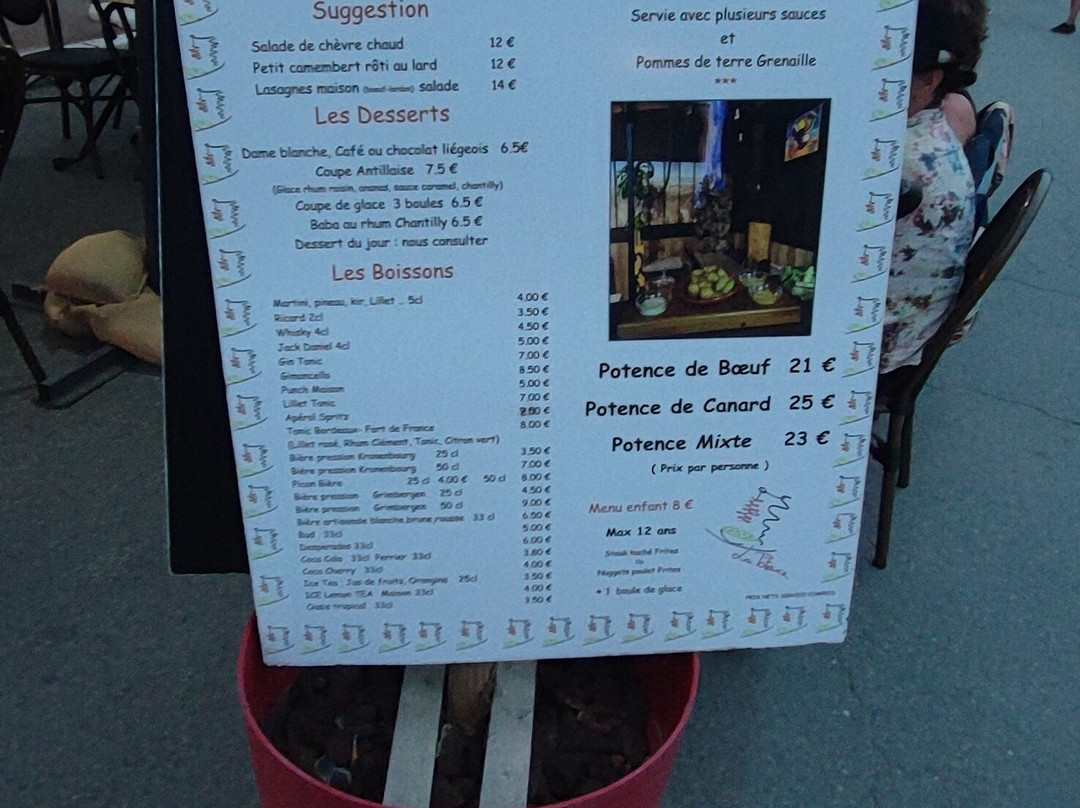 Suggestion
Salade de chèvre chaud 12 €
Petit camembert rôti au lard 12 €
Lasagnes maison salade 14 €
Les Desserts
Dame blanche, Café ou chocolat liégeois 6.5€
Coupe Antillaise 7.5 €
(Glace rhum raisin, ananas, sauce caramel, chantilly)
Coupe de glace 3 boules 6.5 €
Baba au rhum Chantilly 6.5 €
Dessert du jour : nous consulter
Les Boissons
Martini, pineau, kir, Lilliet .. 5cl 4.00 €
Ricard 2cl 3.50 €
Whisky 4cl 4.50 €
Jack Daniel 4cl 5.00 €
Gin Tonic 7.00 €
Gimoncello 8.50 €
Punch Maison 5.00 €
Lilliet Tonic 7.00 €
Apérol Spritz
Tonic Bordeaux- Fort de France 8.00 €
(Lilliet rosé, Rhum Clément, Tonic, Citron vert)
Bière pression Kronenbourg 25 cl 3.50 €
Bière pression Kronenbourg 50 cl 7.00 €
Picon Bière 25 cl 4.00 € 50 cl 8.00 €
Bière pression Grimbergen 25 cl 4.50 €
Bière pression Grimbergen 50 cl 9.00 €
Bière artisanale blanche,brune,rousse 33 cl 6.50 €
Bud 33cl 5.00 €
Desperados 33cl 6.00 €
Coca Cola 33cl Perrier 33cl 3.80 €
Coca Cherry 33cl 4.00 €
Ice Tea, Jus de fruits, Orangina 25cl 3.50 €
ICE Lemon TEA Maison 33cl 4.00 €
Oasis tropical 33cl 3.50 €
Servie avec plusieurs sauces
et
Pommes de terre Grenaille
***
Potence de Bœuf 21 €
Potence de Canard 25 €
Potence Mixte 23 €
( Prix par personne )
Menu enfant 8 €
Max 12 ans
Steak haché Frites
Ou
Nuggets poulet Frites
+ 1 boule de glace
PRIX NETS SERVICE COMPRIS